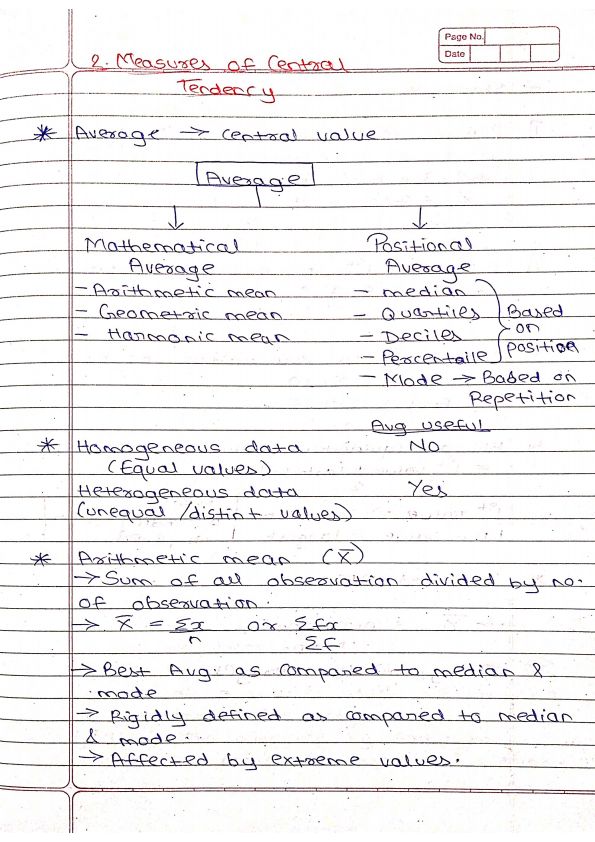 Page No.
Date
2. Measures of Central
Tendency
* Average → central value
Average
Mathematical Average
- Arithmetic mean
- Geometric mean
- Harmonic mean
Positional Average
- median
- Quantiles
- Deciles
- Percentaile
Based on position
- Mode → Based on Repetition
Avg useful
* Homogeneous data No
(Equal values)
Heterogeneous data Yes
(unequal /distint values)
* Arithmetic mean (X̄)
→ Sum of all observation divided by no.
of observation.
→ X̄ = Σx/n or Σfx/Σf
→ Best Avg. as compared to median &
mode
→ Rigidly defined as compared to median
& mode.
→ Affected by extreme values.